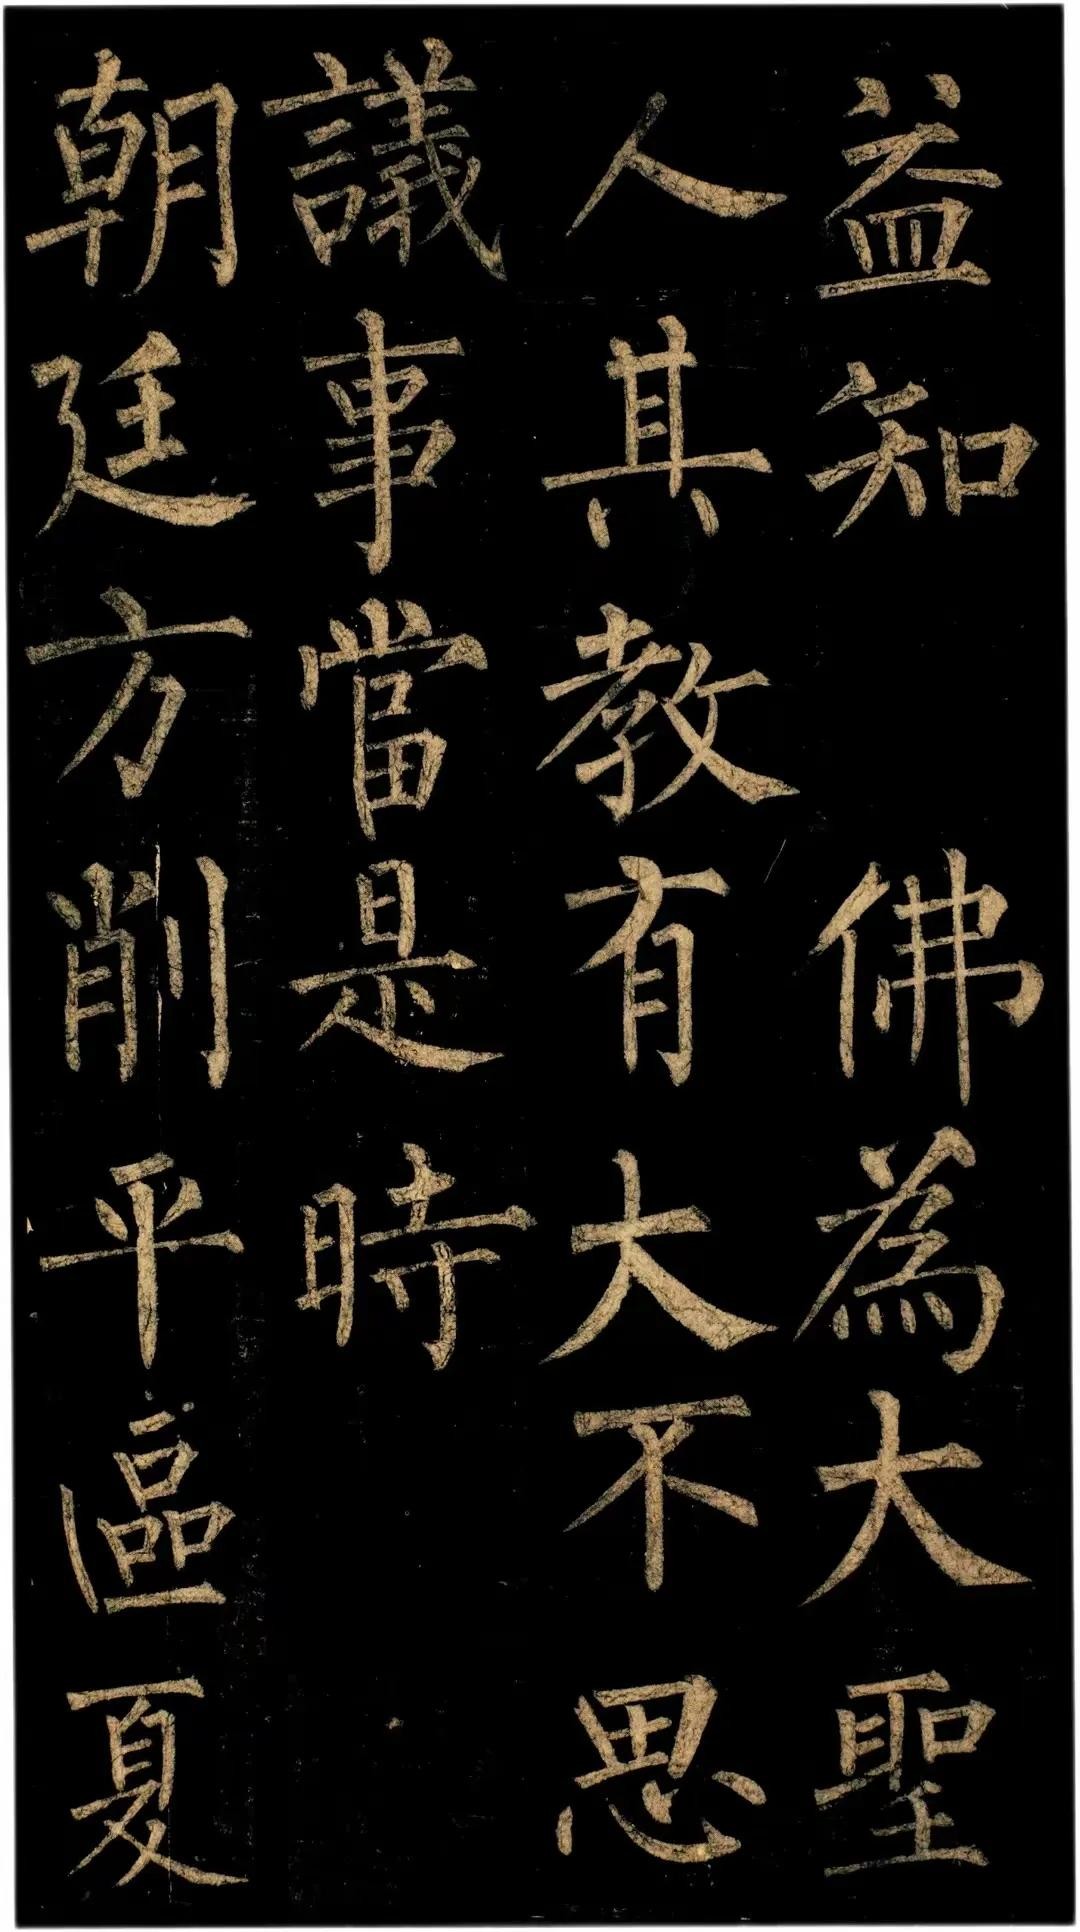 益知　佛為大聖
人其教有大不思
議事當是時
朝廷方削平區夏